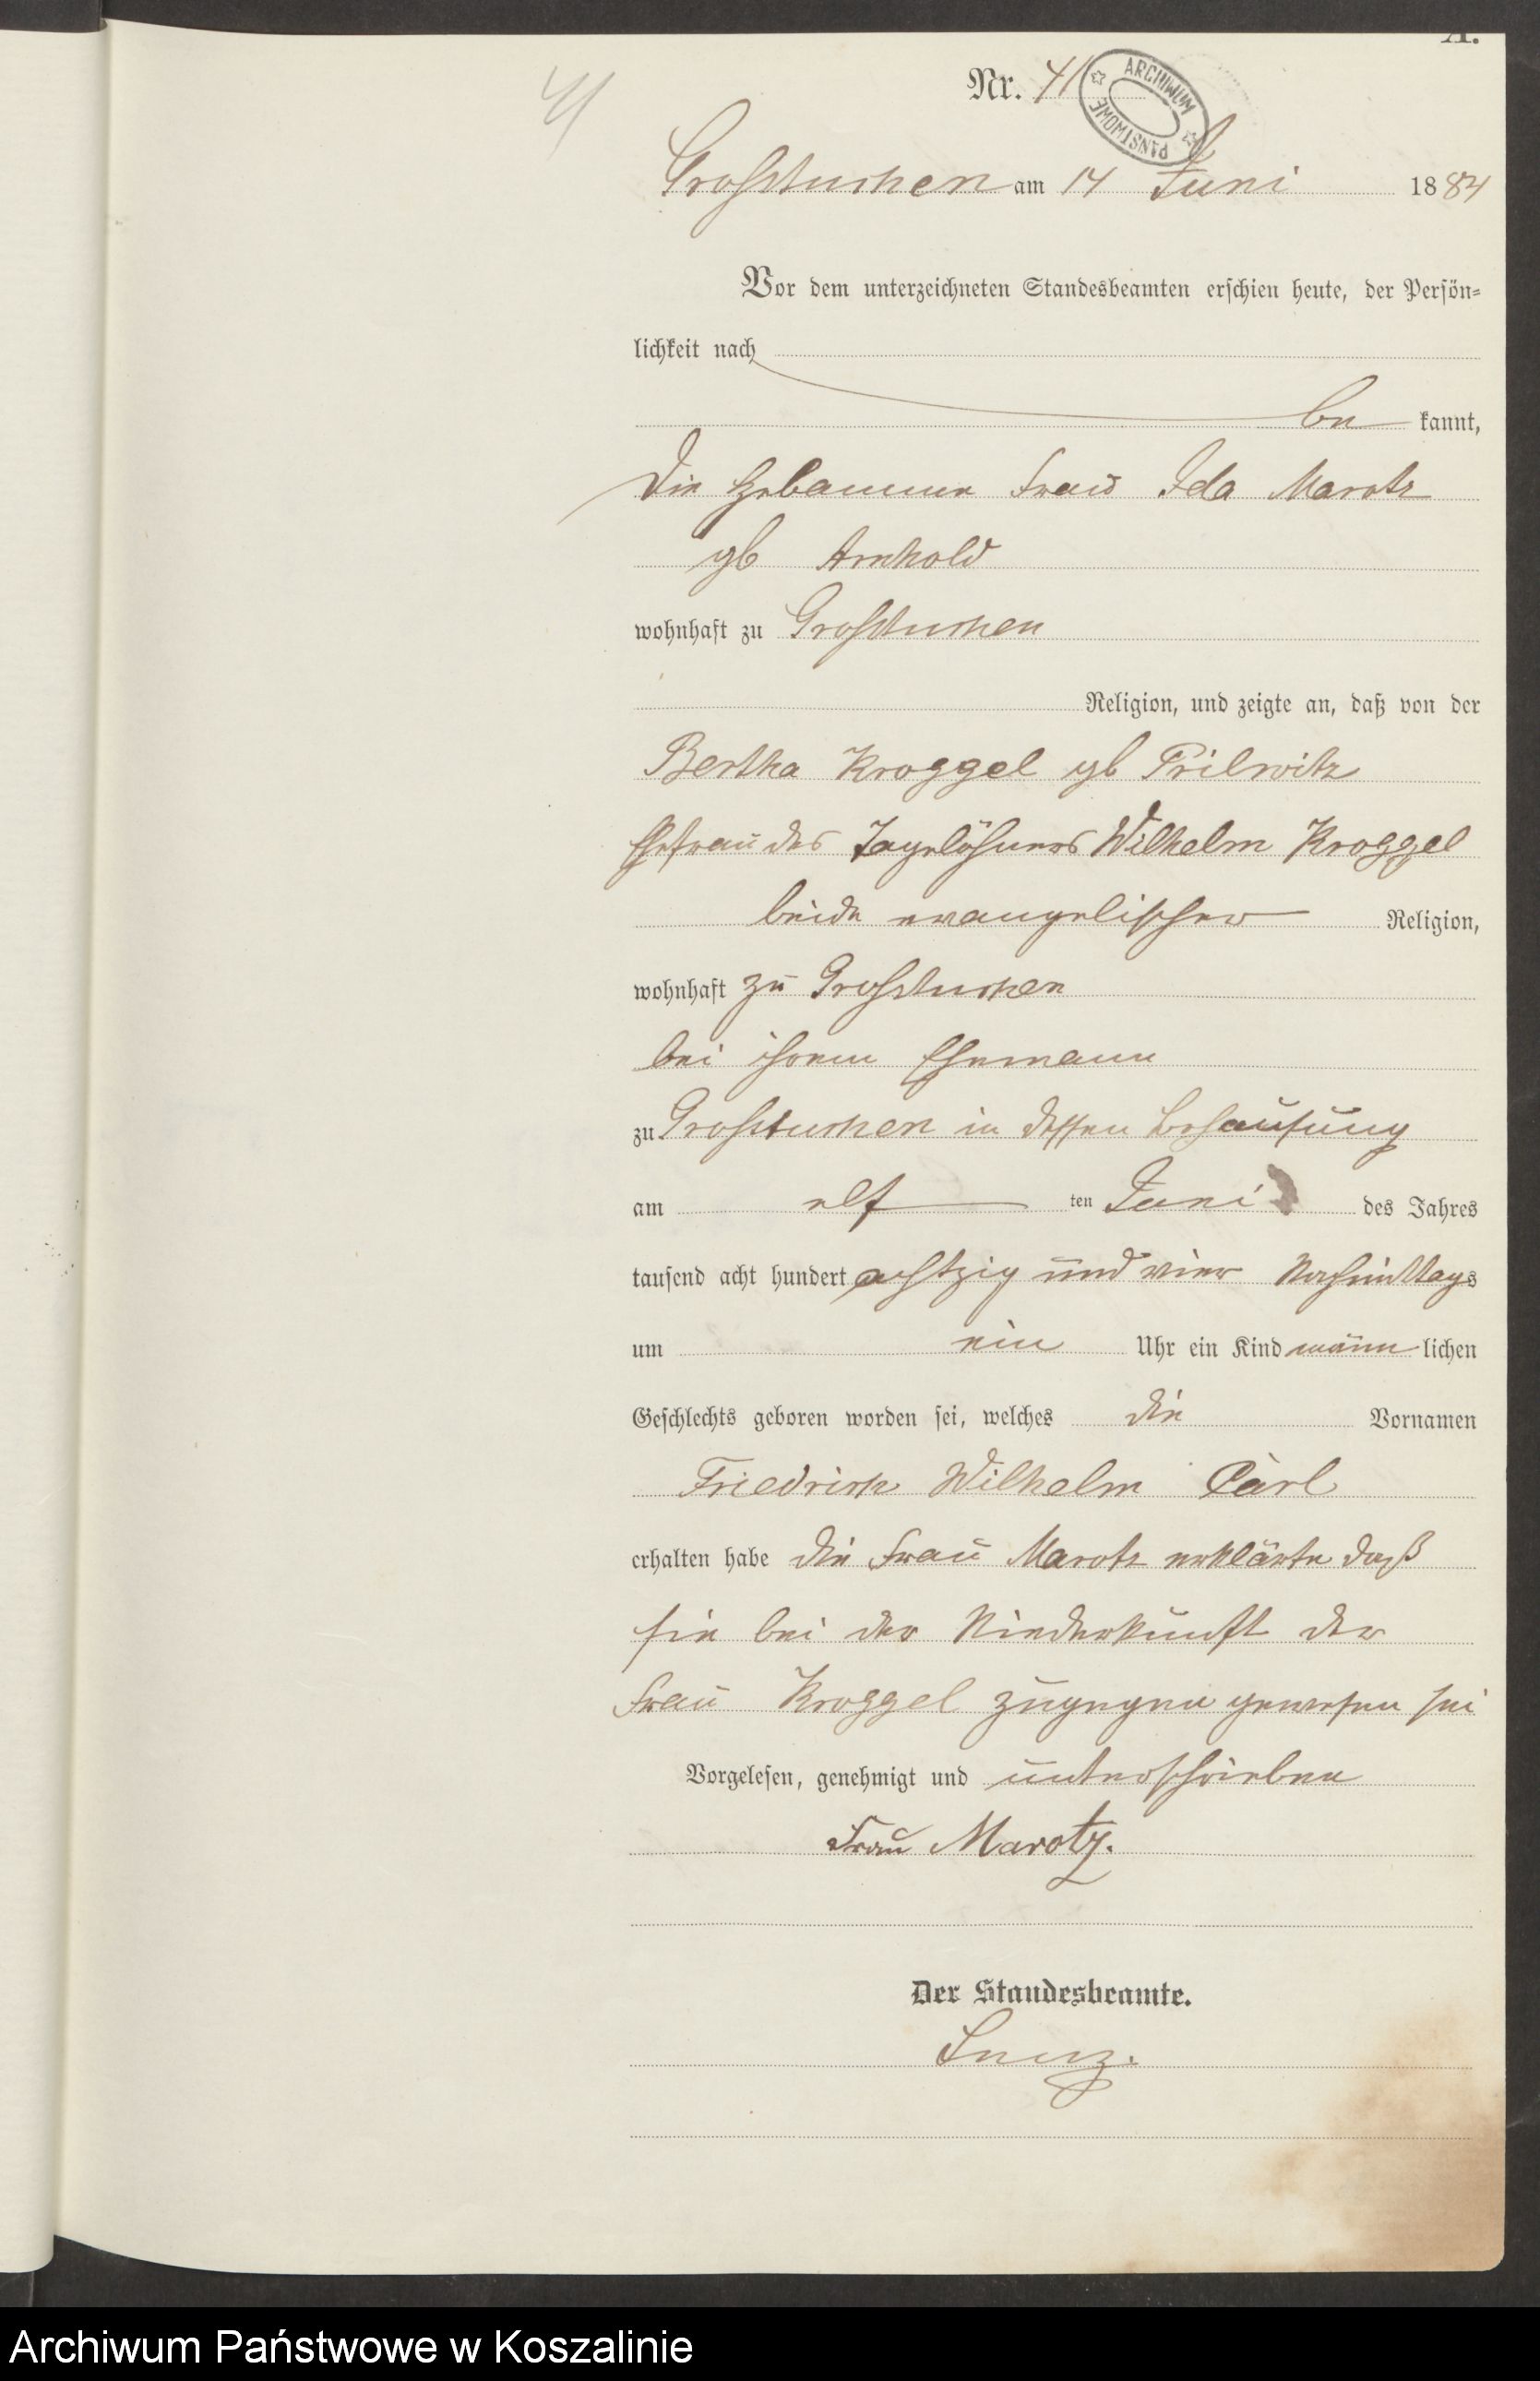 A.
41
Nr. 41
ARCHIWUM PAŃSTWOWE
Grosstuchen am 14 Juni 1884
Vor dem unterzeichneten Standesbeamten erschien heute, der Persön-
lichkeit nach
be kannt,
die Hebamme Frau Ida Marotz
gb Arnhold
wohnhaft zu Grosstuchen
Religion, und zeigte an, daß von der
Bertha Kroggel gb Prilwitz
Ehefrau des Tagelöhners Wilhelm Kroggel
beide evangelischer Religion,
wohnhaft zu Grosstuchen
bei ihrem Ehemann
zu Grosstuchen in dessen Behausung
am elf ten Juni des Jahres
tausend acht hundert achtzig und vier Nachmittags
um ein Uhr ein Kind männ lichen
Geschlechts geboren worden sei, welches die Vornamen
Friedrich Wilhelm Carl
erhalten habe die Frau Marotz erklärte daß
sie bei der Niederkunft der
Frau Kroggel zugegen gewesen sei
Vorgelesen, genehmigt und unterschrieben
Frau Marotz.
Der Standesbeamte.
Archiwum Państwowe w Koszalinie